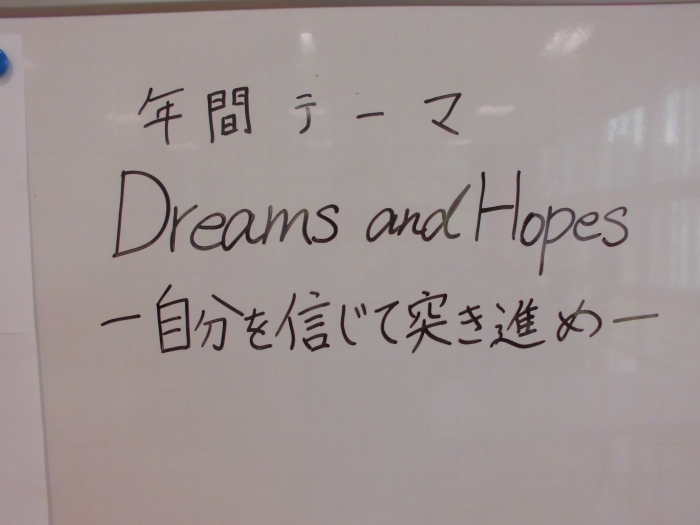 年間テーマ
Dreams and Hopes
ー自分を信じて突き進めー